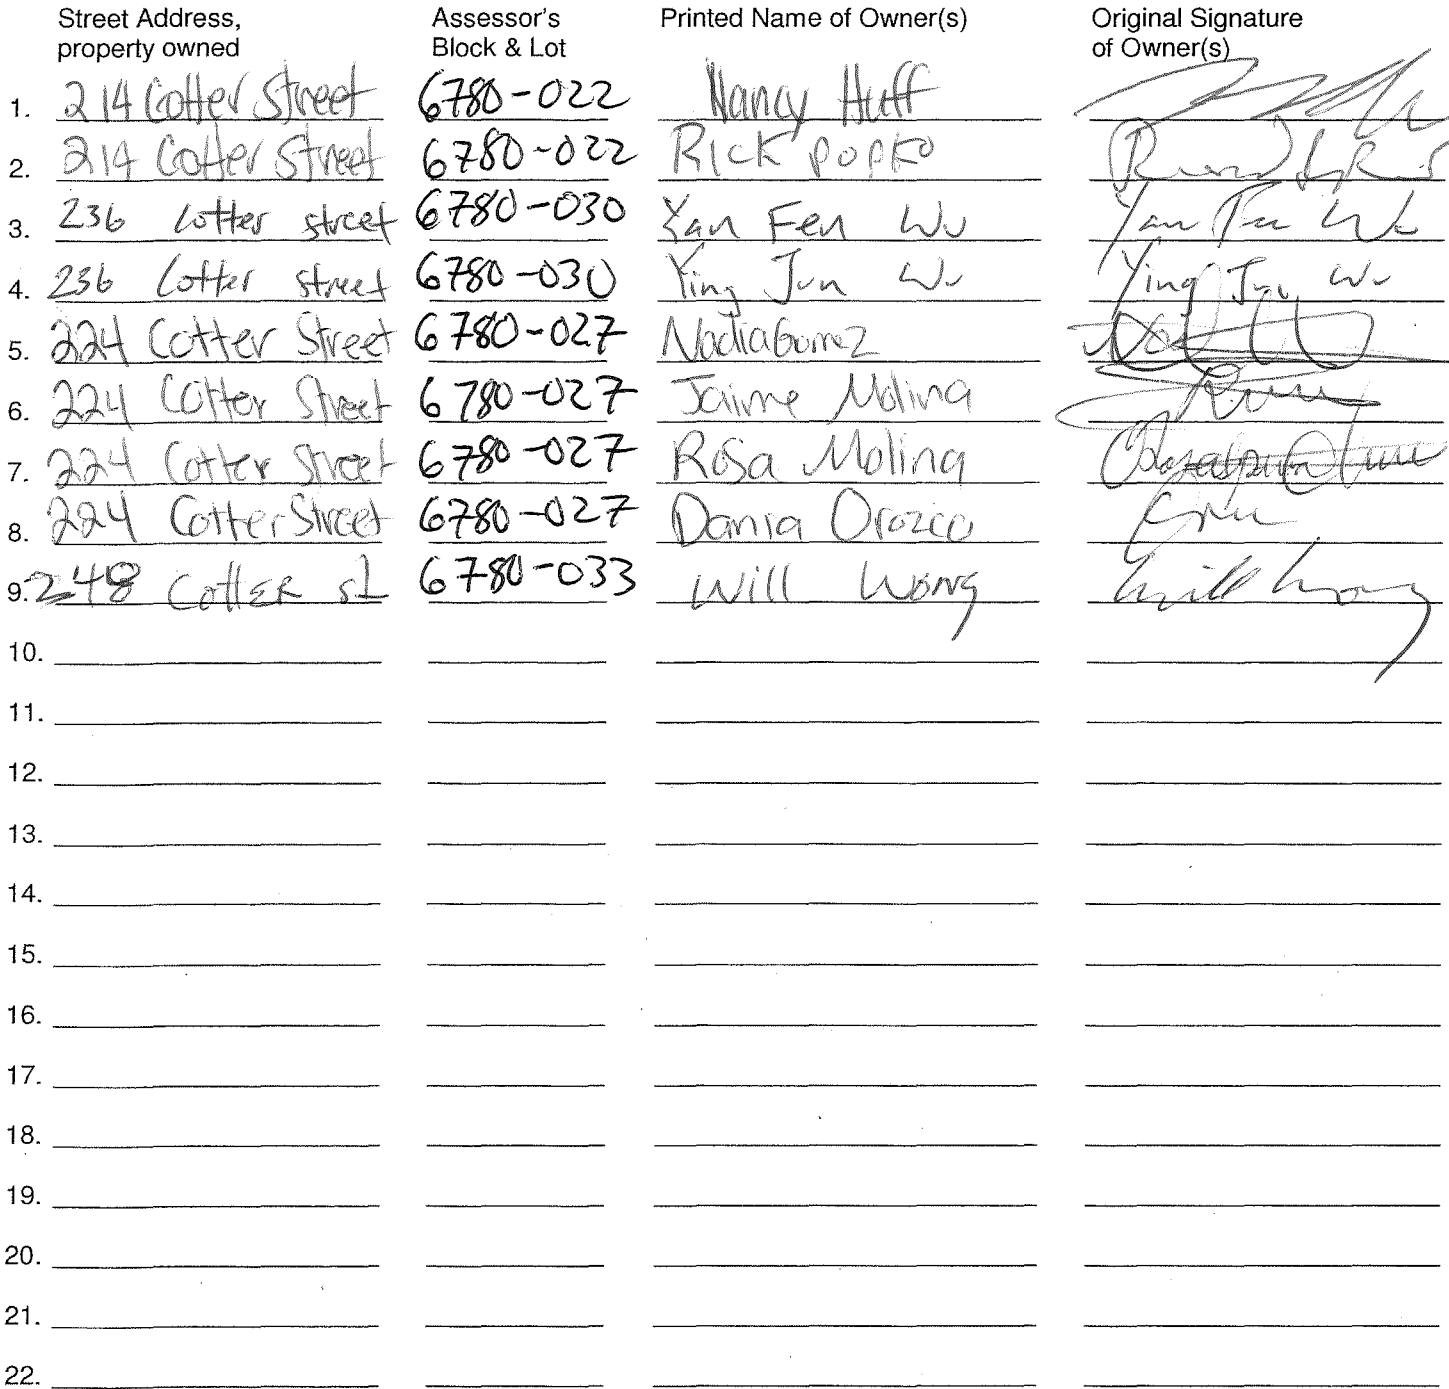 Street Address, Assessor's Printed Name of Owner(s) Original Signature
property owned Block & Lot of Owner(s)
1. 214 Cotter Street 6780-022 Nancy Huff
2. 214 Cotter Street 6780-022 Rick Popko
3. 236 Cotter street 6780-030 Yan Fen Wu Yan Fen Wu
4. 236 Cotter street 6780-030 Ying Jun Wu Ying Jun Wu
5. 224 Cotter Street 6780-027 Nadia Gomez
6. 224 Cotter Street 6780-027 Jaime Molina
7. 224 Cotter Street 6780-027 Rosa Molina
8. 224 Cotter Street 6780-027 Dania Orozco
9. 248 Cotter st 6780-033 Will Wong Will Wong
10.
11.
12.
13.
14.
15.
16.
17.
18.
19.
20.
21.
22.